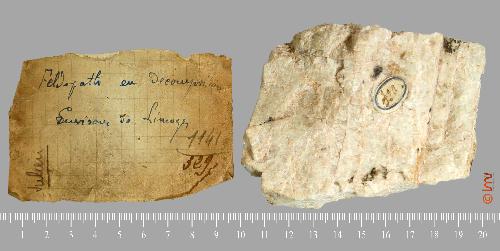 Feldspath en Décomposition
Environs de Limoges
1141
529
1 2 3 4 5 6 7 8 9 10 11 12 13 14 15 16 17 18 19 20